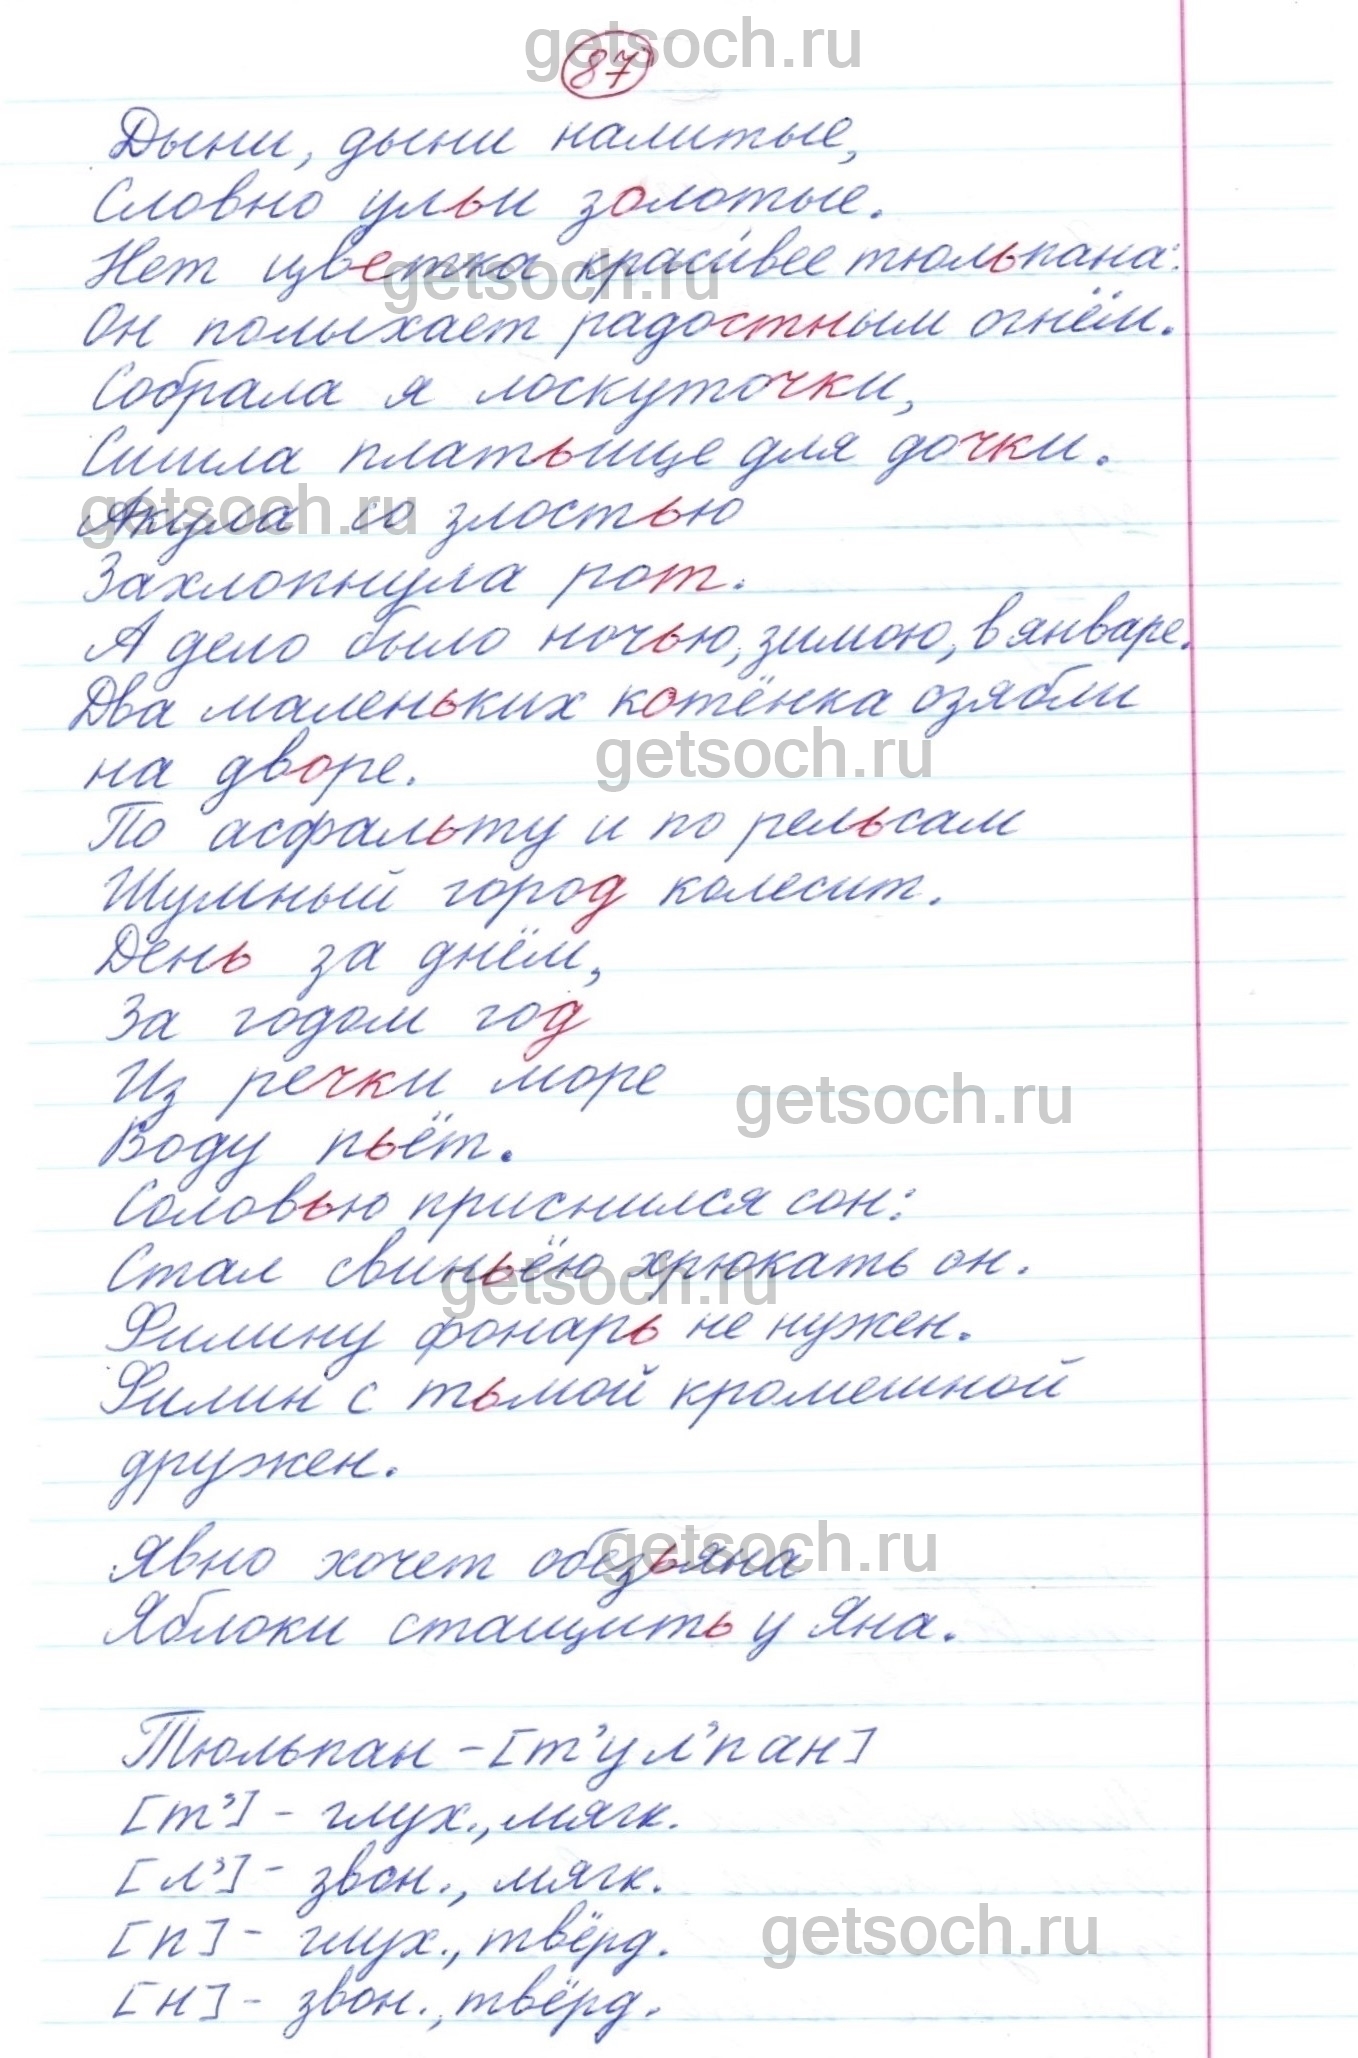 getsoch.ru
87
Дыни, дыни налитые,
Словно ульи золотые.
Нет цветка красивее тюльпана:
getsoch.ru
Он полыхает радостным огнём.
Собрала я лоскуточки,
Сшила платьице для дочки.
getsoch.ru
Акула со злостью
Захлопнула рот.
А дело было ночью, зимою, в январе.
Два маленьких котёнка озябли
getsoch.ru
на дворе.
По асфальту и по рельсам
Шумный город колесит.
День за днём,
За годом год
Из речки море
getsoch.ru
Воду пьёт.
Соловью приснился сон:
Стал свиньёю хрюкать он.
getsoch.ru
Филину фонарь не нужен.
Филин с тьмой кромешной
дружен.
getsoch.ru
Явно хочет обезьяна
Яблоки стащить у Яна.
Тюльпан - [т'ул'пан]
[т'] - глух., мягк.
[л'] - звон., мягк.
[п] - глух., твёрд.
getsoch.ru
[н] - звон., твёрд.